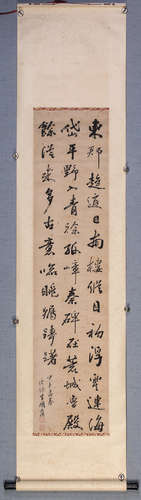 東郡趨庭日南樓縱目初浮雲連海
岱平野入青徐孤嶂秦碑在荒城魯殿
餘從來多古意臨眺獨躊躇